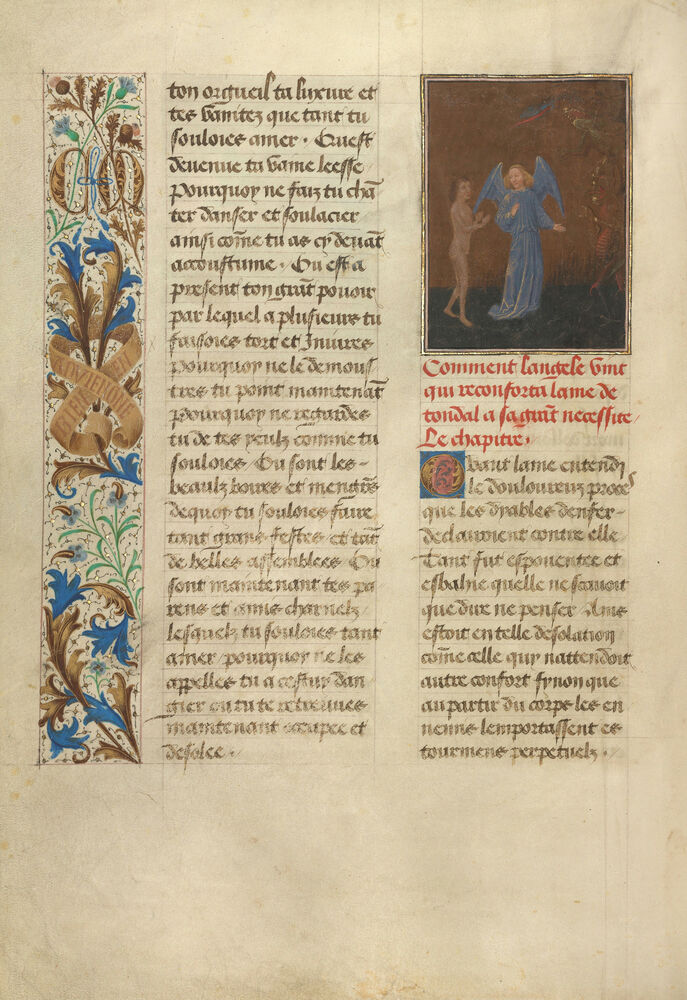 ton orgueil ta luxure et
tes vanitez que tant tu
souloies amer. Quest
devenue ta vaine leesse
Pourquoy ne faiz tu chā
ter danser et soulacier
ainsi cōme tu as cy devāt
acoustume. Ou est a
present ton grāt povoir
par lequel a plusieurs tu
faisoies tort et Iniures
pourquoy ne le demous
tres tu point maintenāt
pourquoy ne regardes
tu de tes yeulz comme tu
souloies. Ou sont les
beaulz boires et mengi͛s
dequoy tu souloies faire
tant grans festes et tāt
de belles assemblees Ou
sont maintenant tes pa
rens et amis charnelz
lesquelz tu souloies tant
amer pourquoy ne les
appelles tu a cestuy dan
gier ou tu te retreuves
maintenant et
desolee.
Comment langele vint
qui reconforta lame de
tondal a sa grāt necessite
Le chapitre.
Quant lame entendi
le douloureux proces
que les dyables denfer
declairoient contre elle
Tant fut espouentee et
esbahie quelle ne scavoit
que dire ne penser Ains
estoit en telle desolation
cōme celle quy nattendoit
autre confort synon que
au partir du corps les en
nemis lemportassent es
tourmens perpetuelz.